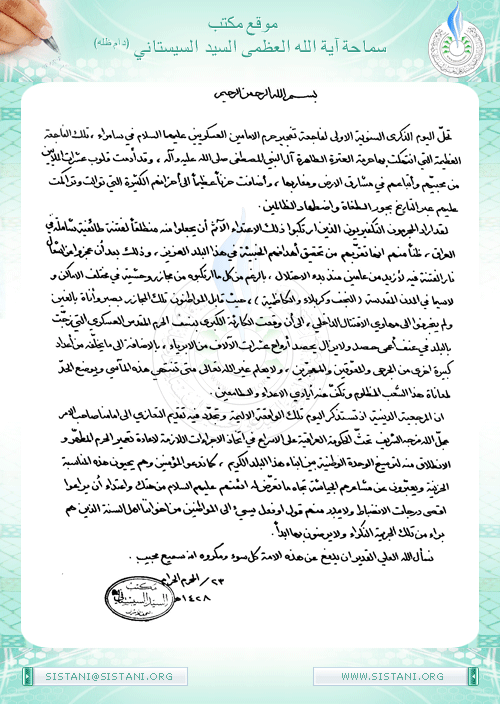 موقع مكتب
سماحة آية الله العظمى السيد السيستاني (دام ظله)
بسم الله الرحمن الرحيم
تمرّ اليوم الذكرى السنوية الاولى لفاجعة تفجير حرم الامامين العسكريين عليهما السلام في سامراء ، تلك الفاجعة
العظيمة التي انتهكت بها حرمة العترة الطاهرة آل النبي المصطفى صلى الله عليه وآله ، وقد أدمت قلوب عشرات الملايين
من محبيهم وأتباعهم في مشارق الارض ومغاربها ، وأضافت حزناً عظيماً الى أحزانهم الكثيرة التي توالت وتراكمت
عليهم عبر التاريخ بجور الطغاة واضطهاد الظالمين .
لقد اراد المجرمون التكفيريون الذين ارتكبوا ذلك الاعتداء الآثم أن يجعلوا منه منطلقاً لفتنة طائفية شاملة في
العراق ، ظناً منهم انها تقرّبهم من تحقيق أهدافهم الخبيثة في هذا البلد العزيز ، وذلك بعد أن عجزوا عن إشعال
نار الفتنة فيه لأزيد من عامين منذ بدء الاحتلال ، بالرغم من كل ما ارتكبوه من مجازر وحشية في مختلف الاماكن و
لاسيما في المدن المقدسة ( النجف وكربلاء والكاظمية ) ، حيث قابل المواطنون تلك المجازر بصبر وأناة بالغين
ولم ينجرّوا الى مهاوي الاقتتال الداخلي ، الى أن وقعت الكارثة الكبرى بنسف الحرم المقدس العسكري التي زجّت
بالبلد في عنف أعمى حصد ولا يزال يحصد أرواح عشرات الآلاف من الابرياء ، بالاضافة الى ما يخلّفه من أعداد
كبيرة اخرى من الجرحى والمعوّقين والمهجّرين ، ولا يعلم غير الله تعالى متى تنتهي هذه المآسي ويوضع الحدّ
لمعاناة هذا الشعب المظلوم وتكفّ عنه أيادي الاعداء والطامعين .
ان المرجعية الدينية اذ تستذكر اليوم تلك الواقعة الاليمة وتجدّد فيه تقديم التعازي الى امامنا صاحب الامر
عجّل الله فرجه الشريف تحثّ الحكومة العراقية على الاسراع في اتخاذ الاجراءات اللازمة لإعادة تعمير الحرم المطهّر و
الانطلاق منه لترسيخ الوحدة الوطنية بين ابناء هذا البلد الكريم ، كما تدعو المؤمنين وهم يحيون هذه المناسبة
الحزينة ويعبّرون عن مشاعرهم الجياشة تجاه ما تعرّض له ائمتهم عليهم السلام من هتك واعتداء أن يراعوا
اقصى درجات الانضباط ولا يبدر منهم قول او فعل يسيء الى المواطنين من اخواننا اهل السنة الذين هم
براء من تلك الجريمة النكراء ولا يرضون بها أبداً .
نسأل الله العلي القدير ان يدفع عن هذه الامة كل سوء ومكروه انه سميع مجيب .
٢٣/ المحرم الحرام
١٤٢٨هـ
مكتب
السيد السيستاني
SISTANI@SISTANI.ORG
WWW.SISTANI.ORG